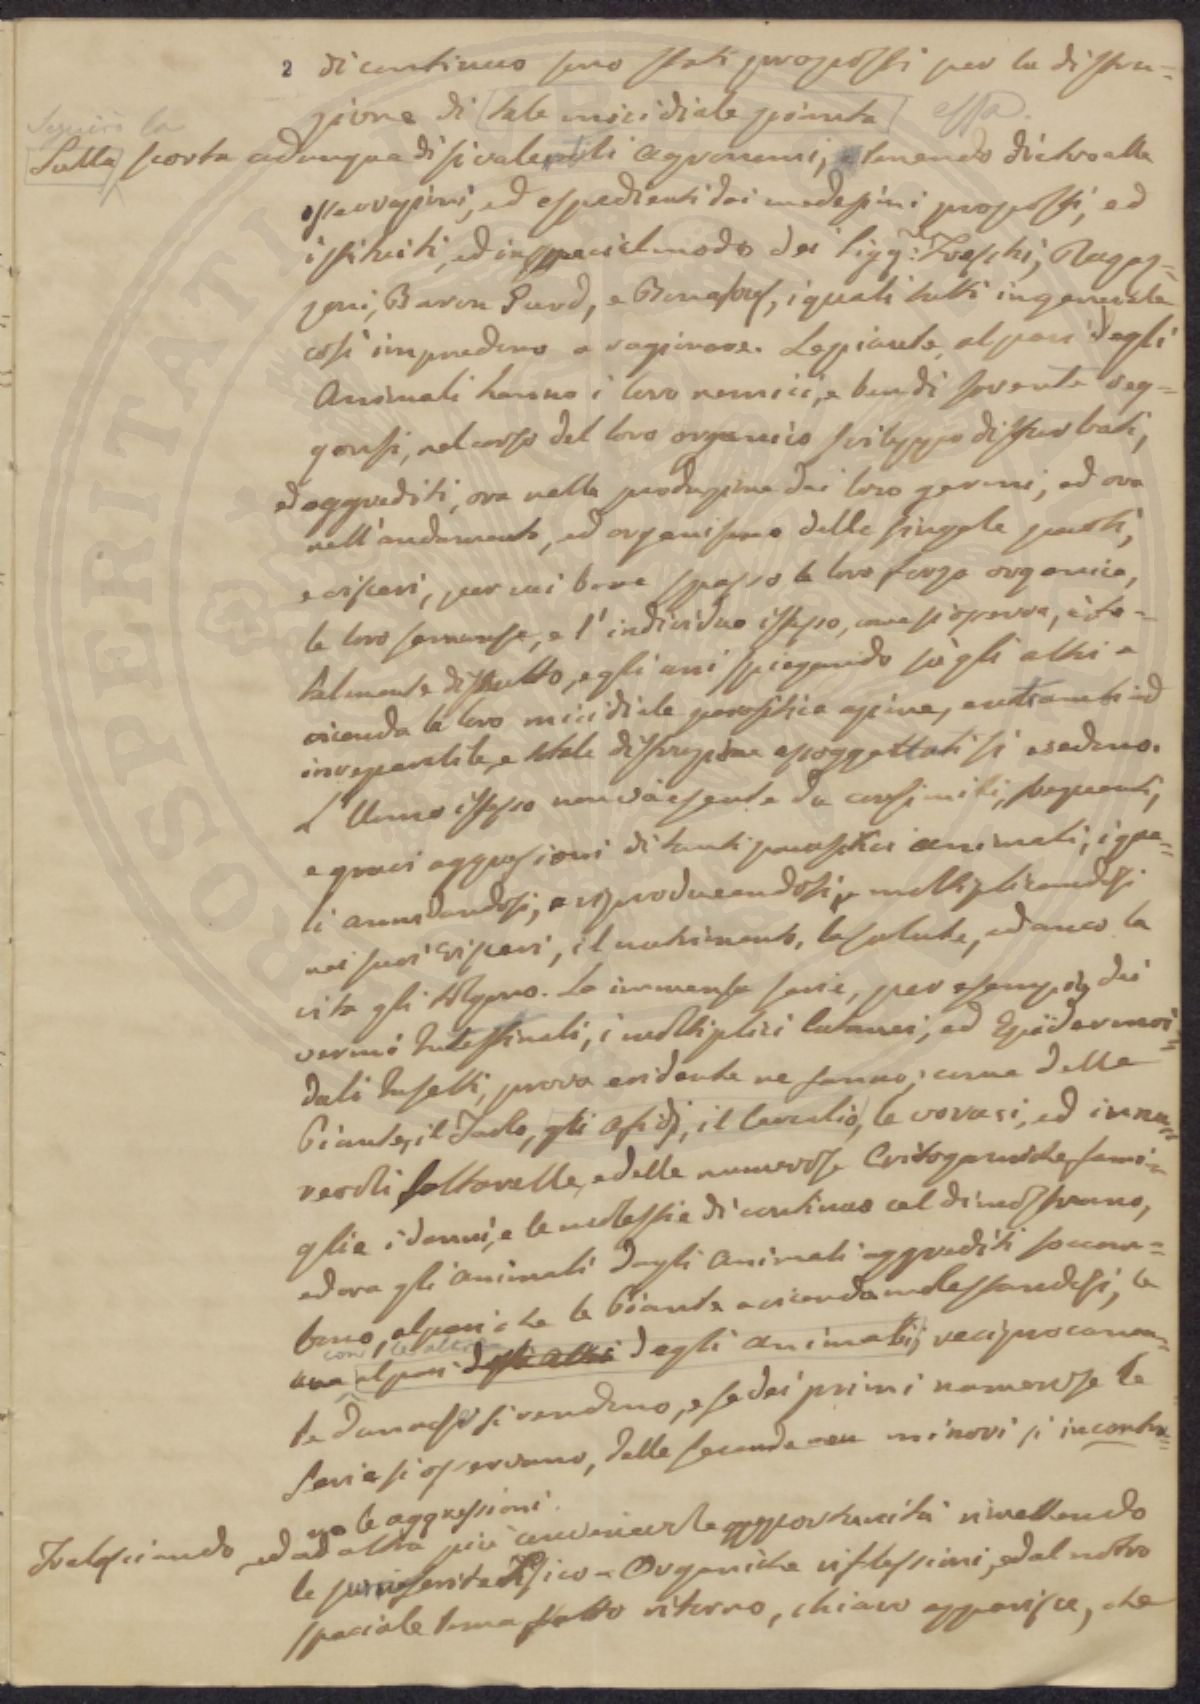 2 di continuo sono stati proposti per la distru=
zione di tale micidiale pianta essa.
Seguirò la
Sulla scorta adunque di sì valenti agronomi, e tenendo dietro alle
osservazioni, ed espedienti dai medesimi proposti, ed
istituiti, ed in ispecial modo dei Sigg:ri Freschi, Ragaz=
zoni, Baron Surd, e Bonafous, i quali tutti in generale
così imprendono a ragionare. Le piante, al pari degli
Animali hanno i loro nemici, e ben di sovente veg=
gonsi, nel corso del loro organico sviluppo disturbati,
ed aggrediti, ora nella produzione dei loro germi, ed ora
nell'andamento, ed organismo delle singole parti,
e visceri, per cui bene spesso la loro forza organica,
la loro semenza, e l'individuo istesso, come si osserva, è to=
talmente distrutto, e gli uni spiegando sù gli altri a
vicenda la loro micidiale parasitica azione, entrambi ad
irreparabile, e totale distruzione assoggettati si vedono.
L'Uomo istesso non và esente da consimili, frequenti,
e gravi aggressioni di tanti parasitici animali, i qua=
li annidandosi, e riproducendosi, e moltiplicandosi
nei suoi visceri, il nutrimento, la salute, ed anco la
vita gli tolgono. La immensa serie, per esempio, dei
vermi Intestinali, i moltiplici Cutanei, ed Epidermoi=
dali Insetti, prova evidente ne fanno; come delle
Piante, il Tarlo, gli Afidi, il Curculio, le voraci, ed innu=
revoli Saltarelle, e delle numerose Crittogamiche fami=
glie i danni, e le molestie di continuo cel dimostrano,
ed ora gli animali dagli Animali aggrediti soccom=
bono, al pari che le Piante a vicenda molestandosi, le
con le altre
une al pari degli altri degli animali, reciprocamen=
te dannose si rendono, e se dei primi numerose le
Serie si osservano, delle seconde non minori si incontra=
no le aggressioni.
Tralasciando, ed ad altra più conveniente opportunità rimettendo
le Fisico-Organiche riflessioni, ed al nostro
speciale tema fatto ritorno, chiaro apparisce, che